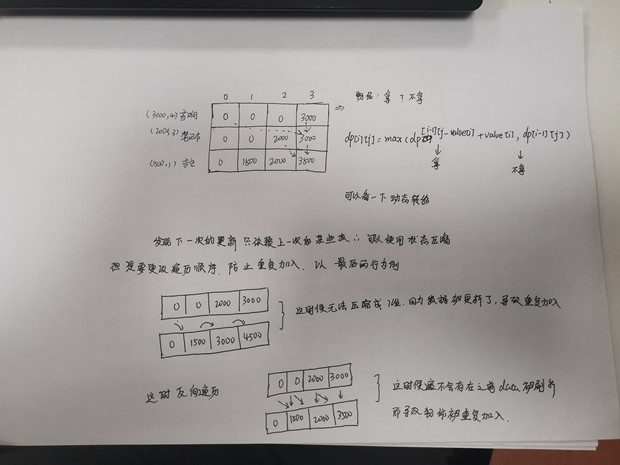 0 1 2 3
(3000,4) 音响 0 0 0 3000 ⇒ 物品: 拿? 不拿
(2000,3) 笔记本 0 0 2000 3000 dp[i][j] = max(dp[i-1][j-value[i]+value[i], dp[i-1][j])
(1500,1) 吉他 0 1500 2000 3500 拿 不拿
可以看一下动态转移
发现下一次的更新只依赖上一次的某些点 ∴ 可以使用状态压缩
但是要更改遍历顺序, 防止重复加入, 以最后两行为例
0 0 2000 3000
这时候无法压缩成1维, 因为数据被更新了, 导致重复加入
0 1500 3000 4500
这时反向遍历
0 0 2000 3000
这时候遍不会存在之前data被刷新
0 1500 2000 3500
而导致的物被重复加入.